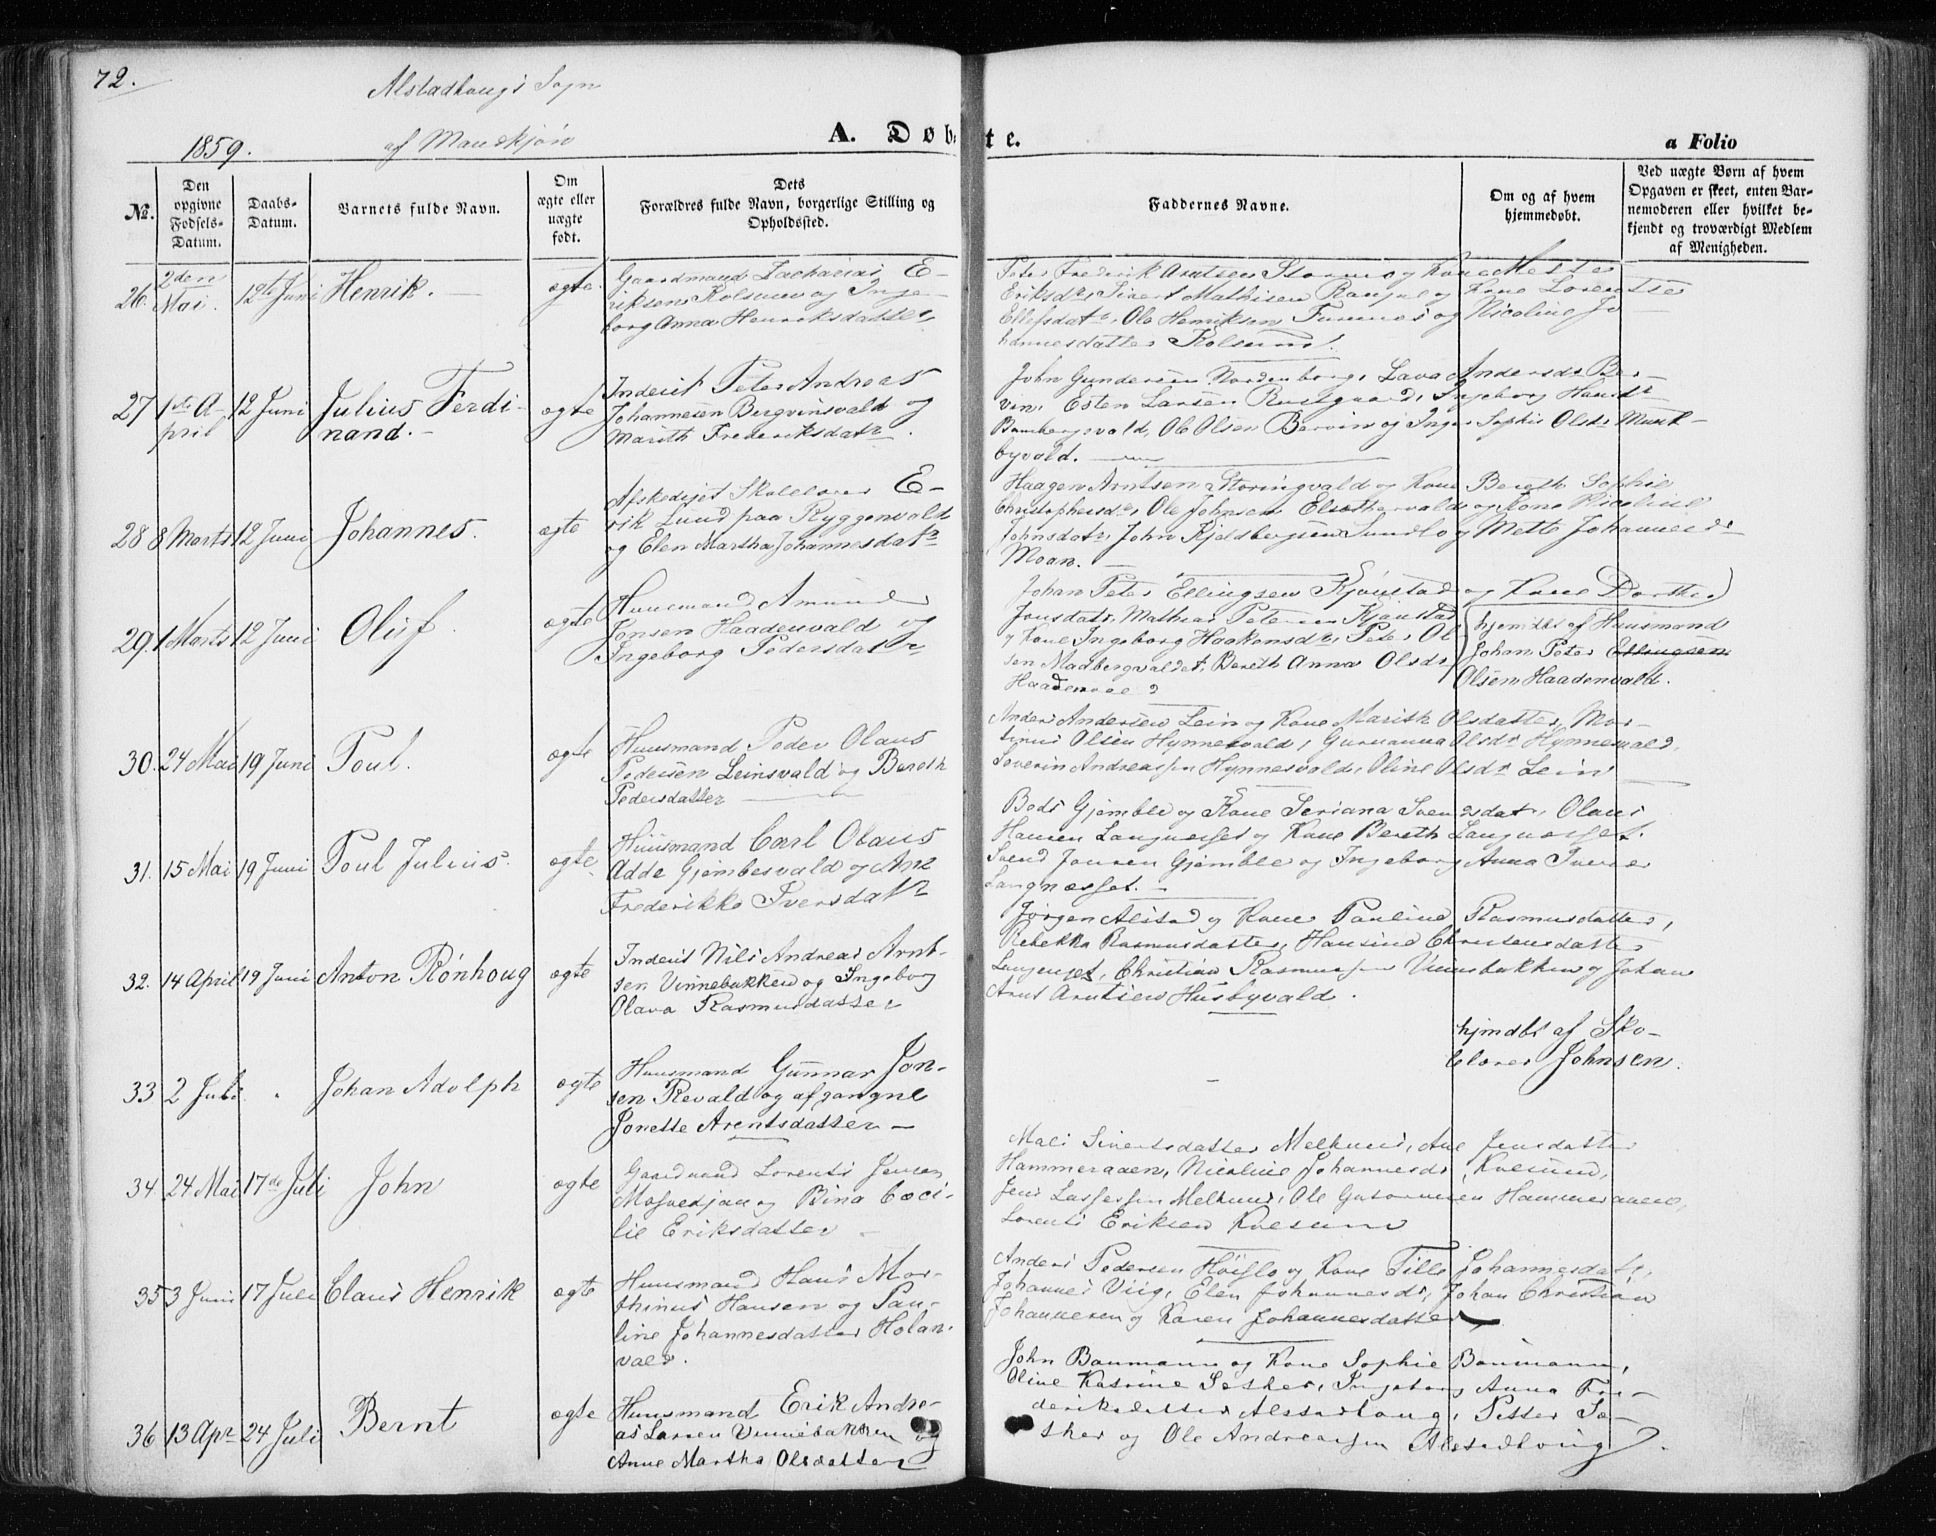 72.
Alstadhougs Sogn
1859.
af Mandkjøn
A. Døbte.
a Folio
No.
Den opgivne Fødsels-Datum.
Daabs-Datum.
Barnets fulde Navn.
Om ægte eller uægte født.
Dets Forældres fulde Navn, borgerlige Stilling og Opholdssted.
Faddernes Navne.
Om og af hvem hjemmedøbt.
Ved uægte Børn af hvem Opgaven er skeet, enten Barnemoderen eller hvilket bekjendt og troværdigt Medlem af Menigheden.
26. 2den Mai. 12te Juni Henrik. ægte.
Gaardmand Zacharias E-
riksen Kolsum og Inge-
borg Anna Henriksdatter,
Peter Frederik Arntsen Storm og Kone Mette
Eriksdr, Sivert Mathisen og Kone Lorentse
Ellefsdatr, Ole Henriksen og Nicoline Jo
hannesdatter Kolsum.
27 1ste A-
pril 12 Juni Julius Ferdi-
nand. ægte
Inderst Peter Andreas
Johannesen Bergvinsvald og
Marith Frederiksdatr.
John Gundersen Nordenborg, Lava Andersdr Ber-
vin, Esten Larsen Ingeborg Hansdr
Ole Olsen Bervin og Inger Sophie Olsdr
byvald.
28 8 Marts 12 Juni Johannes. ægte
Afskediget Skolelærer E-
rik Lund paa Ryggenvald
og Elen Martha Johannesdatr
Haagen Arntsen Storingvald og Kone Bereth Sophie
Christophersdr, Ole Johnsen og Kone Nicoline
Johnsdatr, John Kjelsbergsen Sundlo og Mette Johannesdr
Moan.
29. 1 Marts 12 Juni Oluf. ægte
Huusmand Amund
Jonsen Haadenvald og
Ingeborg Pedersdatr
Johan Peter Ellingsen Kjønstad og Kone Dorthea
Jonsdatr, Mathias Petersen Kjønstad
og Kone Ingeborg Haakonsdr, Peter Ol
sen Madbergvaldet, Bereth Anna Olsdr,
hjemdbt af Huusmand
Johan Peter Ellingsen
Olsen Haadenvald.
30. 24 Mai 19 Juni Poul. ægte
Huusmand Peder Olaus
Pedersen Leinsvald og Bereth
Pedersdatter
Anders Andersen Lein og Kone Marith Olsdatter, Mar-
tinus Olsen Hynnesvald, Guruanna Olsdr Hynnesvald,
Severin Andreassen Hynnesvald, Oline Olsdr Lein
31. 15 Mai 19 Juni Poul Julius. ægte.
Huusmand Carl Olaus
Adde Gjembesvald og Ane
Frederikke Iversdatr
Gjemble og Kone Seriana Svendsdatr, Olaus
Hansen Langnesset og Kone Bereth Langnesset.
Svend Jonsen Gjemble og Ingeborg Anna
Langnesset.
32. 14 April 19 Juni Anton Rønhoug ægte
Inderst Nils Andreas Arnt-
sen Vinnebakken og Ingeborg
Olava Rasmusdatter
Jørgen Alstad og Kone Pauline Rasmusdatter,
Rebekka Rasmusdatter, Hansine Christensdatter
Christian Rasmussen Vinnebakken og Johan
Arnt Arntsen Husbyvald.
33 2 Juli " Johan Adolph ægte
Huusmand Gunnar Jon-
sen Revald og afgangne
Jonette Arentsdatter
hjmdbt af Sko-
lelærer Johnsen.
34 24 Mai 17de Juli John ægte
Gaardmand Lorents Jensen
og Bina Ceci-
lie Eriksdatter
Mali Sivertsdatter Melhuus, Ane Jensdatter
Hammeraaen, Nicoline Johannesdr
Jens Lassessen Melhuus, Ole Hammeraaen,
Lorents Eriksen
35 3 Juni 17 Juli Claus Henrik ægte
Huusmand Hans Mar-
thinus Hansen og Pau-
line Johannesdatter Holan-
vald.
Anders Pedersen og Kone Tille Johannesdatr,
Johannes Viig, Elen Johannesdr, Johan Christian
Johannesen og Karen Johannesdatter
36 13 Apr 24 Juli Bernt ægte
Huusmand Erik Andre-
as Larsen Vinnebakken og
Anne Martha Olsdatter
John Baumann og Kone Sophie Baumann,
Oline Katrine Ingeborg Anna Fre-
deriksdatter Alstadhoug, Petter
og Ole Andreassen Alstadhoug.